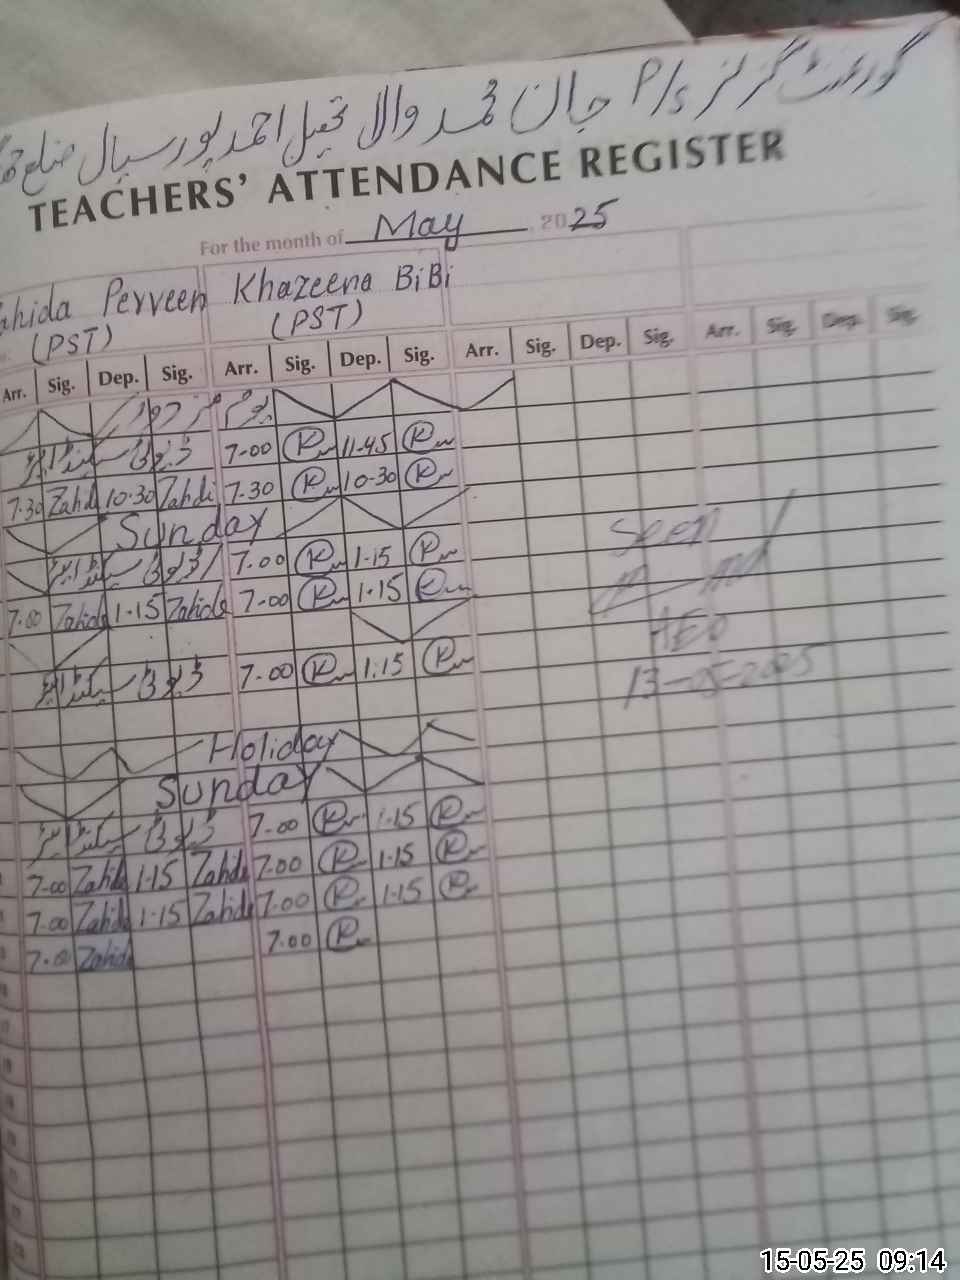 گورنمنٹ گرلز P/s جان محمد والا تحصیل احمد پور سیال ضلع
TEACHERS' ATTENDANCE REGISTER
For the month of May, 2025
Perveen Khazeena BiBi
(PST) (PST)
Arr. Sig. Dep. Sig. Arr. Sig. Dep. Sig. Arr. Sig. Dep. Sig. Arr. Sig. Dep. Sig.
یوم مزدور
ڈیوٹی سیکنڈ ایئر 7-00 R 11-45 R
7.30 Zahd 10-30 Zahdi 7-30 R 10-30 R
Sunday
ڈیوٹی سیکنڈ ایئر 7.00 R 1-15 R
7.00 Zahida 1-15 Zahida 7-00 R 1-15 R
ڈیوٹی سیکنڈ ایئر 7-00 R 1:15 R
Holiday
Sunday
ڈیوٹی سیکنڈ ایئر 7-00 R 1-15 R
7-00 Zahida 1-15 Zahida 7-00 R 1-15 R
7-00 Zahida 1-15 Zahida 7-00 R 1-15 R
7.00 Zahida 7.00 R
Seen
AEO
13-05-2025
15-05-25 09:14